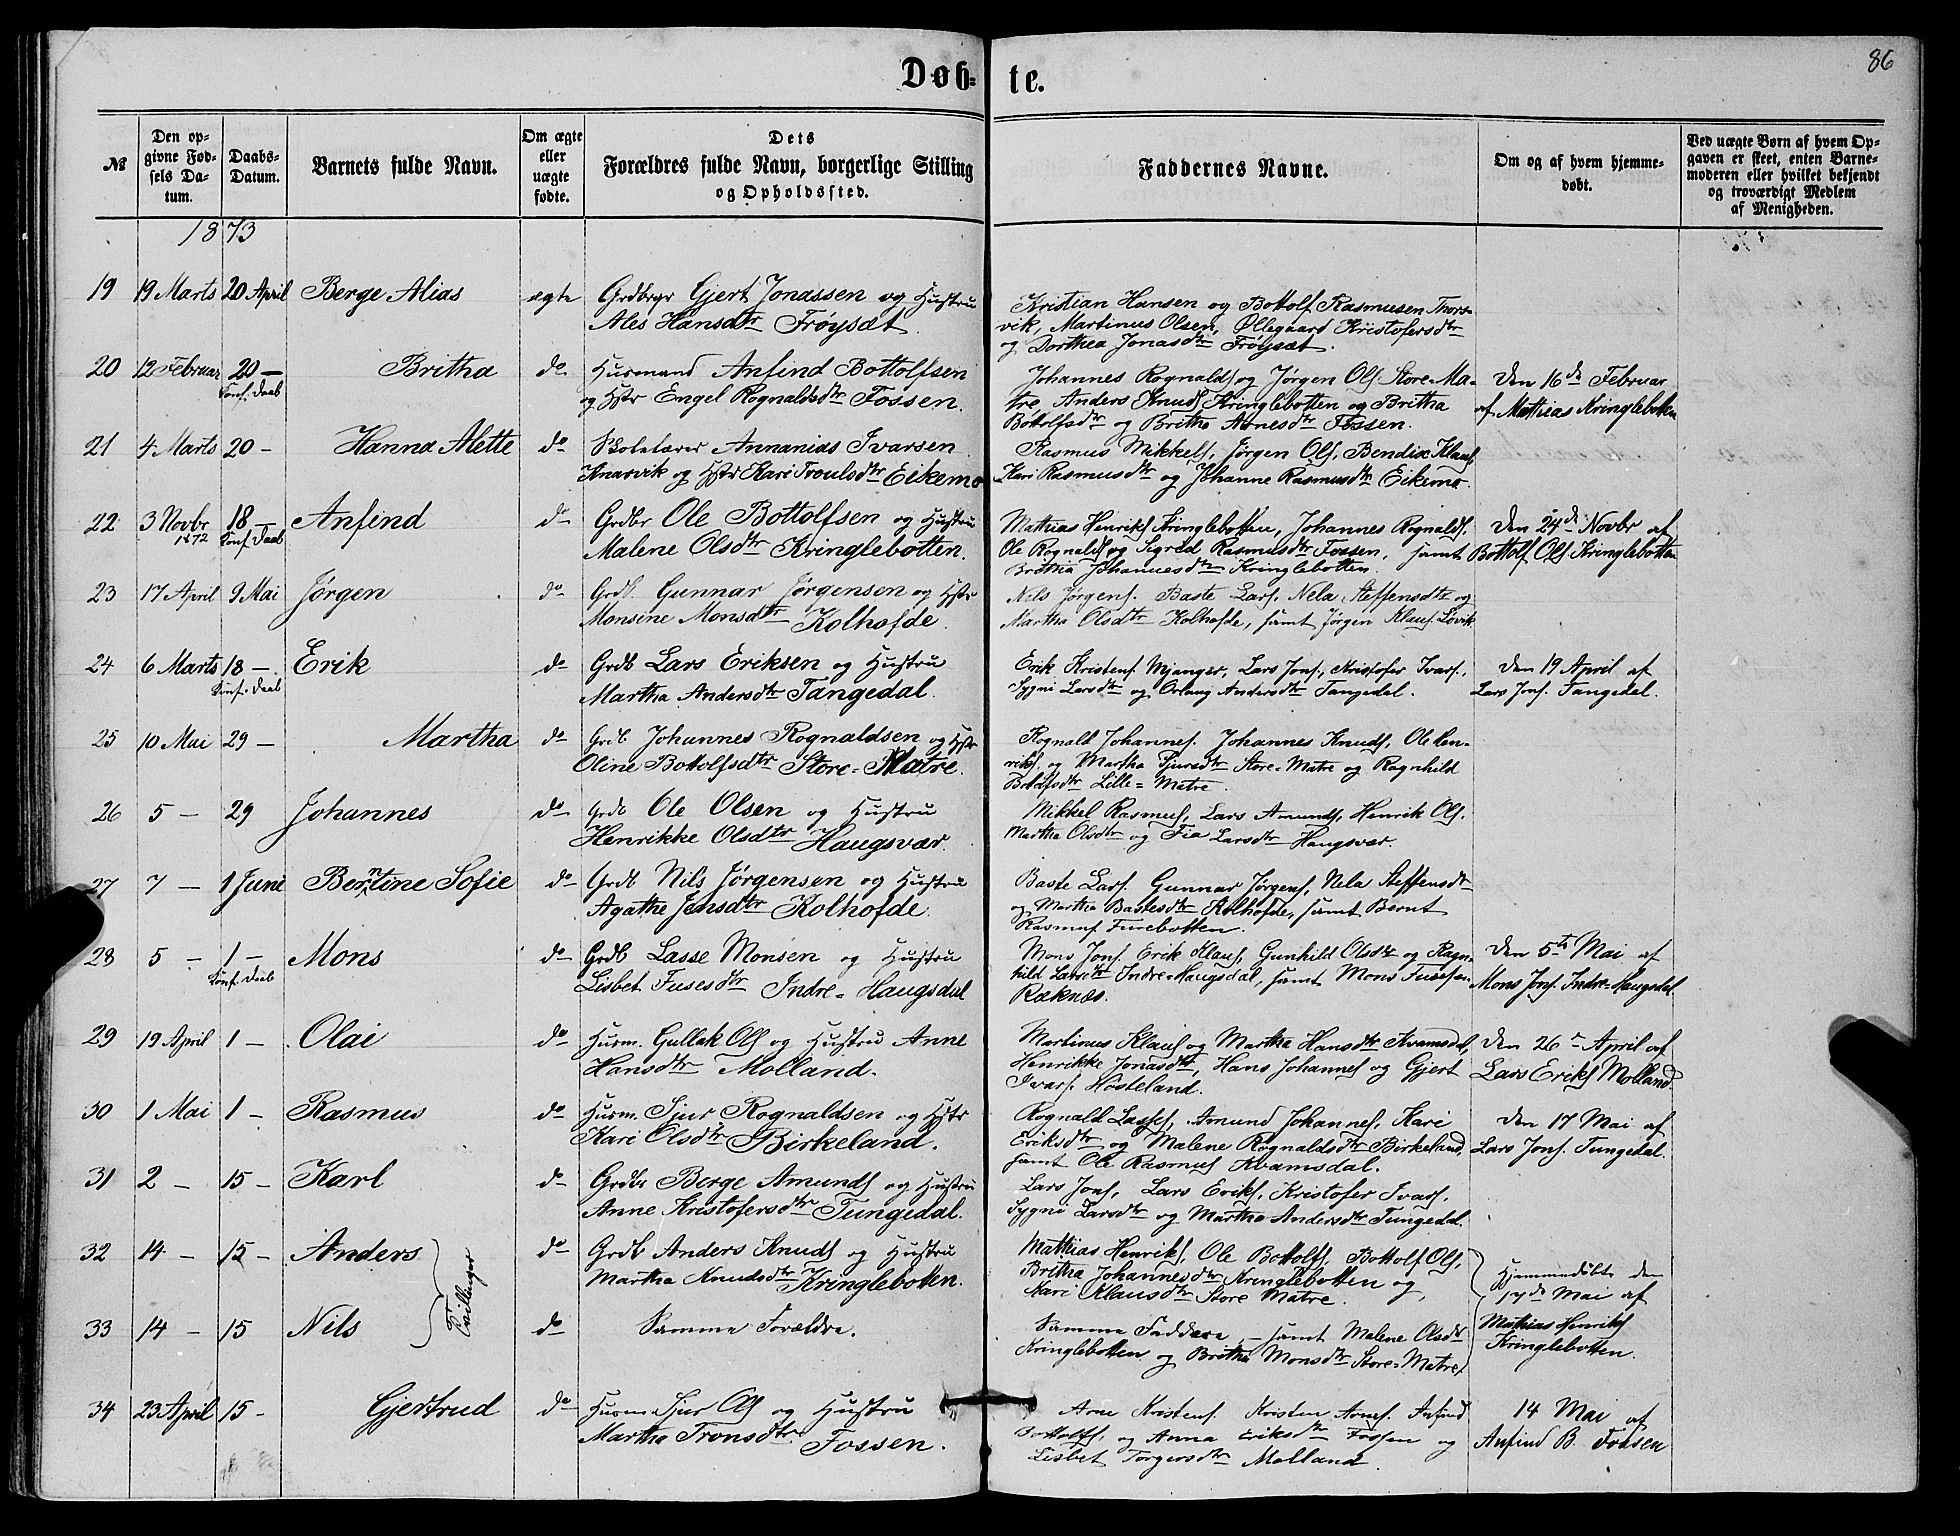 86
Døb-
te.
№
Den op-
givne Fød-
sels Da-
tum.
Daabs-
Datum.
Barnets fulde Navn.
Om ægte
eller
uægte
fødte.
Dets
Forældres fulde Navn, borgerlige Stilling
og Opholdssted.
Faddernes Navne.
Om og af hvem hjemme-
døbt.
Ved uægte Børn af hvem Op-
gaven er skeet, enten Barne-
moderen eller hvilket bekjendt
og troværdigt Medlem
af Menigheden.
1873
19 19 Marts 20 April Berge Alias ægte Grdbrgr Gjert Jonassen og Hustru
Ales Hansdtr Frøysæt.
Kristian Hansen og Bottolf Rasmusen Thors-
vik, Martinus Olsen, Øllegaard Kristofersdtr
og Dorthea Jonasdtr Frøysæt.
20 12 Februar 20 — Britha do Husmand Anfind Bottolfsen
Konf. Daab
og Hstr Engel Rognaldsdtr Fossen.
Johannes Rognalds og Jørgen Ols Store-Ma-
tre, Anders Knuds Kringlebotten og Britha
Bottolfsdtr og Britha Arnesdtr Fossen.
Den 16de Februar
af Mathias Kringlebotten
21 4 Marts 20 - Hanna Alette do Skolelærer Annanias Ivarsen
Knarvik og Hstr Kari Troulsdtr Eikemo
Rasmus Mikkels, Jørgen Ols, Bendix Klaus,
Kari Rasmusdtr og Johanne Rasmusdtr Eikemo.
22 3 Novbr 18 — Anfind do Grdbr Ole Bottolfsen og Hustru
1872 Konf. Daab
Malene Olsdtr Kringlebotten.
Mathias Henriks Kringlebotten, Johannes Rognalds,
Ole Rognalds og Sigrid Rasmusdtr Fossen, samt
Brithia Johannesdtr Kringlebotten.
Den 24de Novbr af
Bottolf Ols Kringlebotten
23 17 April 9 Mai Jørgen do Grdb. Gunnar Jørgensen og Hstr
Monsine Monsdtr Kolhofde.
Nils Jørgens. Baste Lars. Nela Steffensdtr og
Martha Olsdtr Kolhofde, samt Jørgen Klaus. Løvik
24 6 Marts 18 — Erik do Grdb Lars Eriksen og Hustru
Konf. Daab
Martha Andersdtr Tangedal.
Erik Kristens Mjanger, Lars Jons, Kristofer Ivars,
Sygni Larsdtr og Orlaug Andersdtr Tangedal.
Den 19 April af
Lars Jons. Tangedal.
25 10 Mai 29 — Martha do Grdb Johannes Rognaldsen og Hstr
Oline Bottolfsdtr Store-Matre.
Rognald Johannes. Johannes Knuds, Ole Hen-
riks. og Martha Sjursdtr Store-Matre og Ragnhild
Lille-Matre.
26 5 — 29 Johannes do Grdb Ole Olsen og Hustru
Henrikke Olsdtr Haugsvær.
Mikkel Rasmus, Lars Amunds, Henrik Ols.
Martha Olsdtr og Fia Larsdtr Haugsvær.
27 7 — 1 Juni Berntine Sofie do Grdb Nils Jørgensen og Hustru
Agathe Jensdtr Kolhofde.
Baste Lars. Gunnar Jørgens, Nela Steffensdtr
og Martha Bastesdtr Kolhofde, samt Bernt
Rasmus Furebotten.
28 5 — 1 — Mons do Grdb Lasse Monsen og Hustru
Konf. Daab
Lisbet Fusesdtr Indre-Haugsdal
Mons Jons. Erik Klaus, Gunhild Olsdtr og Ragn-
hild Larsdtr Indre-Haugsdal, samt Mons Fusesen
Ræknæs.
Den 5te Mai af
Mons Jons. Indre-Haugsdal
29 19 April 1 — Olai do Husm. Gullak Ols og Hustru Anne
Hansdtr Molland.
Martinus Klaus og Martha Hansdtr Kvamsdal,
Henrikke Jonasdtr, Hans Johannes og Gjert
Ivars. Høsteland.
Den 26de April af
Lars Eriks Molland.
30 1 Mai 1 — Rasmus do Husm. Sjur Rognaldsen og Hstr
Kari Olsdtr Birkeland.
Rognald Lasses, Amund Johannes, Kari
Eriksdtr og Malene Rognaldsdtr Birkeland,
samt Ole Rasmus Kvamsdal.
Den 17 Mai af
Lars Jons. Tungedal.
31 2 — 15 — Karl do Grdbr Berge Amunds og Hustru
Anne Kristofersdtr Tungedal.
Lars Jons, Lars Eriks, Kristofer Ivars,
Sygni Larsdtr og Martha Andersdtr Tungedal.
32 14 — 15 — Anders do Grdb Anders Knuds og Hustru
Martha Knudsdtr Kringlebotten.
Tvillinger
Mathias Henriks, Ole Bottolfs, Bottolf Ols,
Britha Johannesdtr Kringlebotten og
Kari Klausdtr Store Matre.
Hjemmedøbte den
17de Mai af
Mathias Henriks
Kringlebotten.
33 14 — 15 Nils do Samme Forældre.
Samme Faddere, — samt Malene Olsdtr
Kringlebotten og Britha Monsdtr Store-Matre
34 23 April 15 - Gjertrud do Husm. Sjur Ols og Hustru
Martha Tronsdtr Fossen.
Arne Kristens. Kristen Arnes. Anfind
Bottolfs, og Anna Eriksdtr Fossen og
Lisbet Torgersdtr Molland.
14 Mai af
Anfind B. Fossen